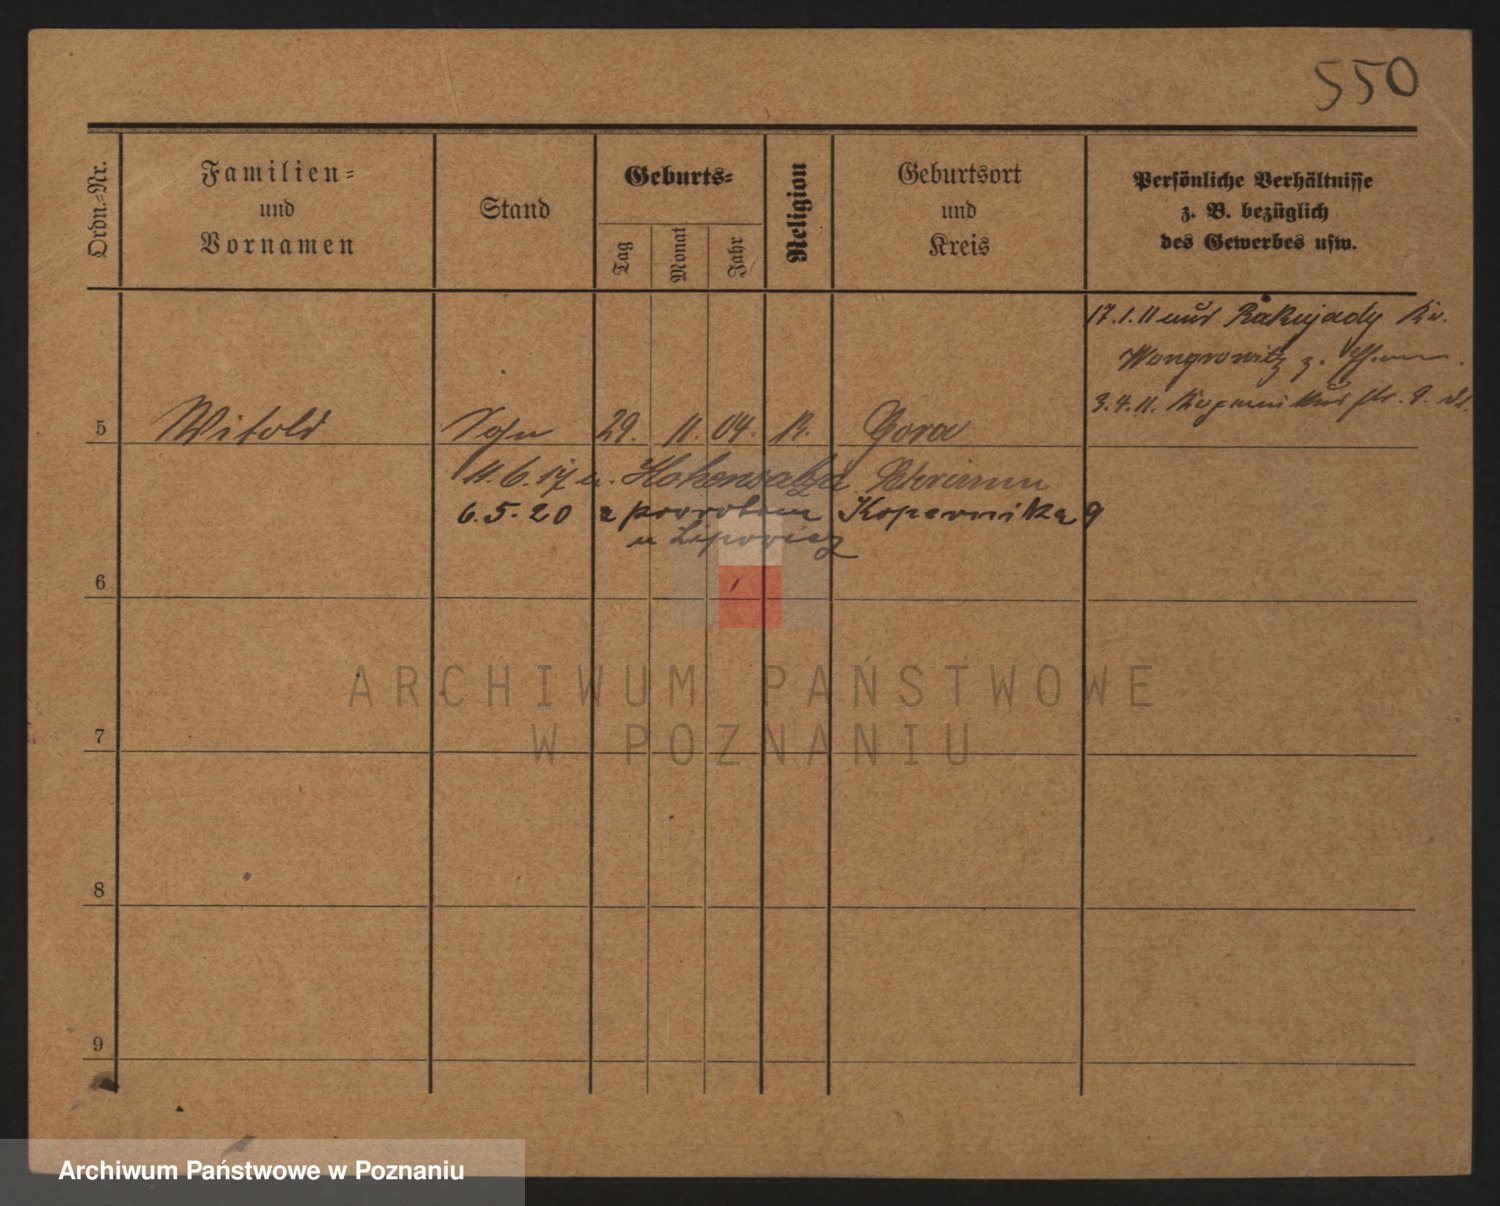 550
Ordn.-Nr.
Familien-
und
Vornamen
Stand
Geburts-
Tag
Monat
Jahr
Religion
Geburtsort
und
Kreis
Persönliche Verhältnisse
z. B. bezüglich
des Gewerbes usw.
17.1.11 auf Rakujady Kr.
Wongrowitz z.
3.4.11. Kopernikusstr. 9.
5 Witold Sohn 29. 11. 04. K. Gora
11.6.17 n. Hohensalza Schrimm
6.5.20 z powrotem Kopernika 9
u Lipowicz
6
7
8
9
ARCHIWUM PAŃSTWOWE
W POZNANIU
Archiwum Państwowe w Poznaniu